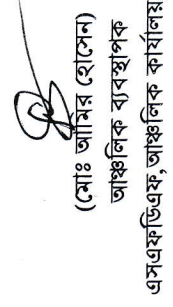 (মোঃ আমির হোসেন)
আঞ্চলিক ব্যবস্থাপক
এসএফডিএফ, আঞ্চলিক কার্যালয়